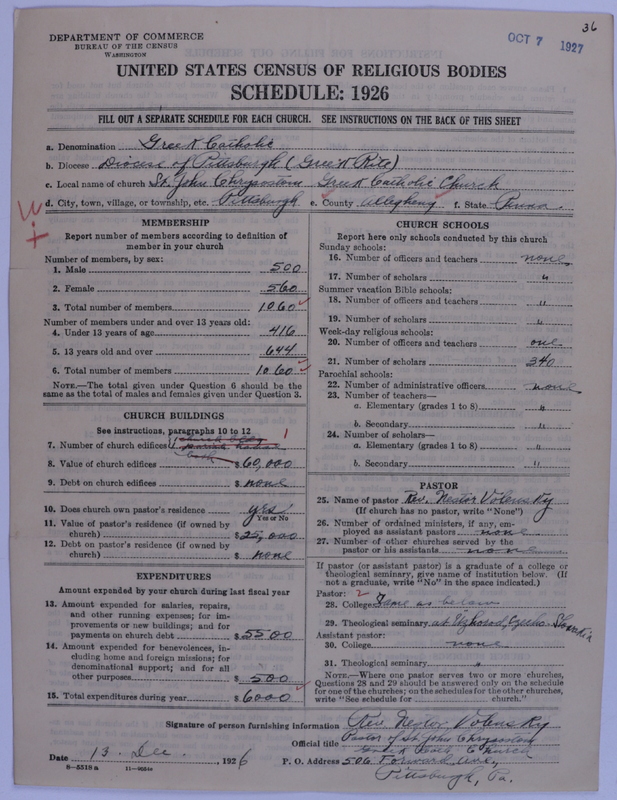 36
OCT 7 1927
DEPARTMENT OF COMMERCE
BUREAU OF THE CENSUS
WASHINGTON
UNITED STATES CENSUS OF RELIGIOUS BODIES
SCHEDULE: 1926
FILL OUT A SEPARATE SCHEDULE FOR EACH CHURCH. SEE INSTRUCTIONS ON THE BACK OF THIS SHEET
a. Denomination Greek Catholic
b. Diocese Diocese of Pittsburgh (Greek Rite)
c. Local name of church St. John Chrysostom Greek Catholic Church
d. City, town, village, or township, etc. Pittsburgh e. County Allegheny f. State Penna.
MEMBERSHIP
Report number of members according to definition of
member in your church
Number of members, by sex:
1. Male 500
2. Female 560
3. Total number of members 1060
Number of members under and over 13 years old:
4. Under 13 years of age 416
5. 13 years old and over 644
6. Total number of members 1060
NOTE.—The total given under Question 6 should be the
same as the total of males and females given under Question 3.
CHURCH BUILDINGS
See instructions, paragraphs 10 to 12
7. Number of church edifices 1
8. Value of church edifices $60,000
9. Debt on church edifices $ none
10. Does church own pastor's residence yes
Yes or No
11. Value of pastor's residence (if owned by
church) $25,000
12. Debt on pastor's residence (if owned by
church) $ none
EXPENDITURES
Amount expended by your church during last fiscal year
13. Amount expended for salaries, repairs,
and other running expenses; for im-
provements or new buildings; and for
payments on church debt $5500
14. Amount expended for benevolences, in-
cluding home and foreign missions; for
denominational support; and for all
other purposes $500
15. Total expenditures during year $6000
CHURCH SCHOOLS
Report here only schools conducted by this church
Sunday schools:
16. Number of officers and teachers none
17. Number of scholars "
Summer vacation Bible schools:
18. Number of officers and teachers "
19. Number of scholars "
Week-day religious schools:
20. Number of officers and teachers one
21. Number of scholars 340
Parochial schools:
22. Number of administrative officers none
23. Number of teachers—
a. Elementary (grades 1 to 8) "
b. Secondary "
24. Number of scholars—
a. Elementary (grades 1 to 8) "
b. Secondary "
PASTOR
25. Name of pastor Rev. Nestor Volensky
(If church has no pastor, write "None")
26. Number of ordained ministers, if any, em-
ployed as assistant pastors none
27. Number of other churches served by the
pastor or his assistants none
If pastor (or assistant pastor) is a graduate of a college or
theological seminary, give name of institution below. (If
not a graduate, write "No" in the space indicated.)
Pastor: 2
28. College Same as below
29. Theological seminary at Uzhorod, Czecho-Slovakia
Assistant pastor:
30. College none
31. Theological seminary "
NOTE.—Where one pastor serves two or more churches,
Questions 28 and 29 should be answered only on the schedule
for one of the churches; on the schedules for the other churches,
write "See schedule for church."
Signature of person furnishing information Rev. Nestor Volensky
Official title Pastor of St. John Chrysostom
Greek Cath. Church
Date 13. Dec. , 1926 P. O. Address 506 Forward Ave,
Pittsburgh, Pa.
8—5518a 11—9664